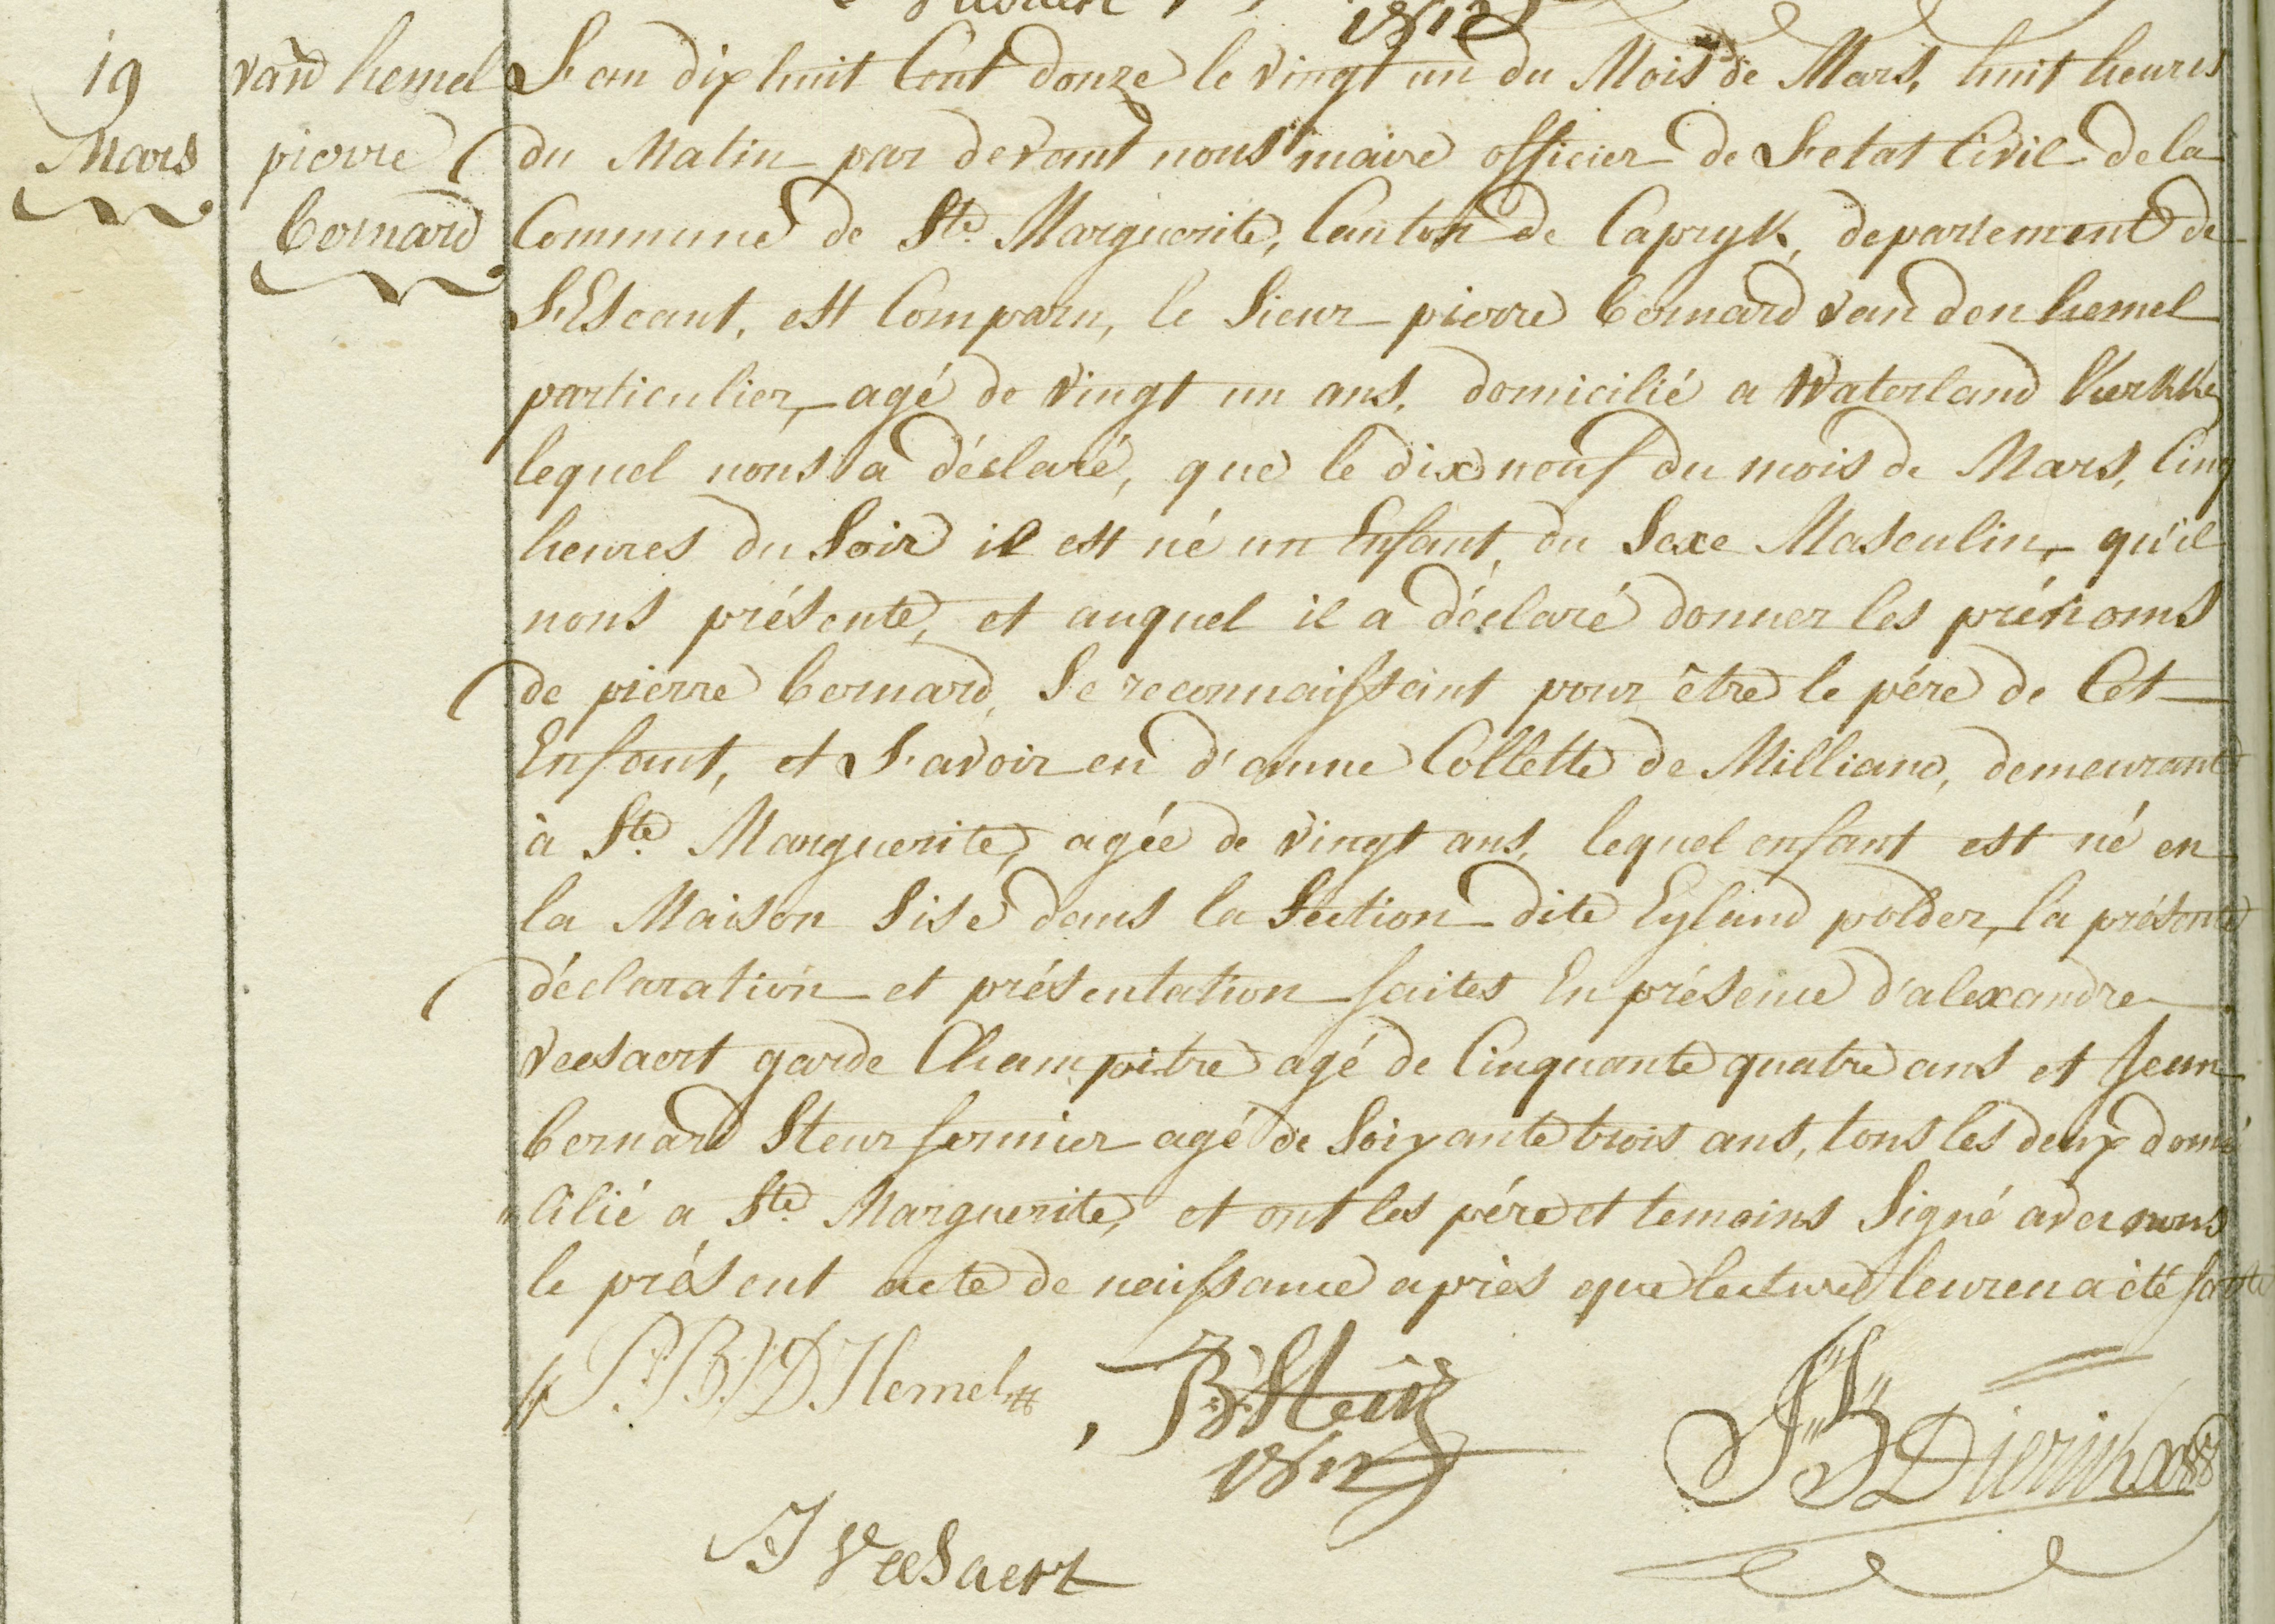 1812
19
Mars
vand hemel
pierre
bernard
L'an dix huit Cent donze le vingt un du Mois de Mars, huit heures
du Matin par devant nous maire officier de L'etat Civil de la
Commune de Ste. Marguerite, Canton de Capryk, departement de
L'Escaut, est Comparu, le Sieur pierre bernard van den hemel
particulier, agé de vingt un ans, domicilié a Waterland Kerkke
lequel nous a déclaré, que le dix neuf du mois de Mars, Cinq
heures du Soir il est né un Enfant, du Sexe Masculin, qu'il
nous présente, et auquel il a déclaré donner les prénoms
de pierre bernard, Se reconnaissant pour être le pére de Cet
Enfant, et L'avoir eu d'anne Collette de Milliano, demeurant
à Ste. Marguerite, agée de vingt ans, lequel enfant est né en
la Maison Sise dans la Section dite Eyland polder, la présente
déclaration et présentation faites En présence d'alexandre
veesaert garde Champêtre agé de Cinquante quatre ans et Jean
bernard Steur fermier agé de Soixante trois ans, tous les deux domi
"cilié a Ste. Marguerite, et ont les pére et temoins Signé avec nous
le présent acte de naissance après que lecture leur en a été faite
P. B. V D. Hemel
B. Steur
1812
JB Dierickx
J VeeSaert